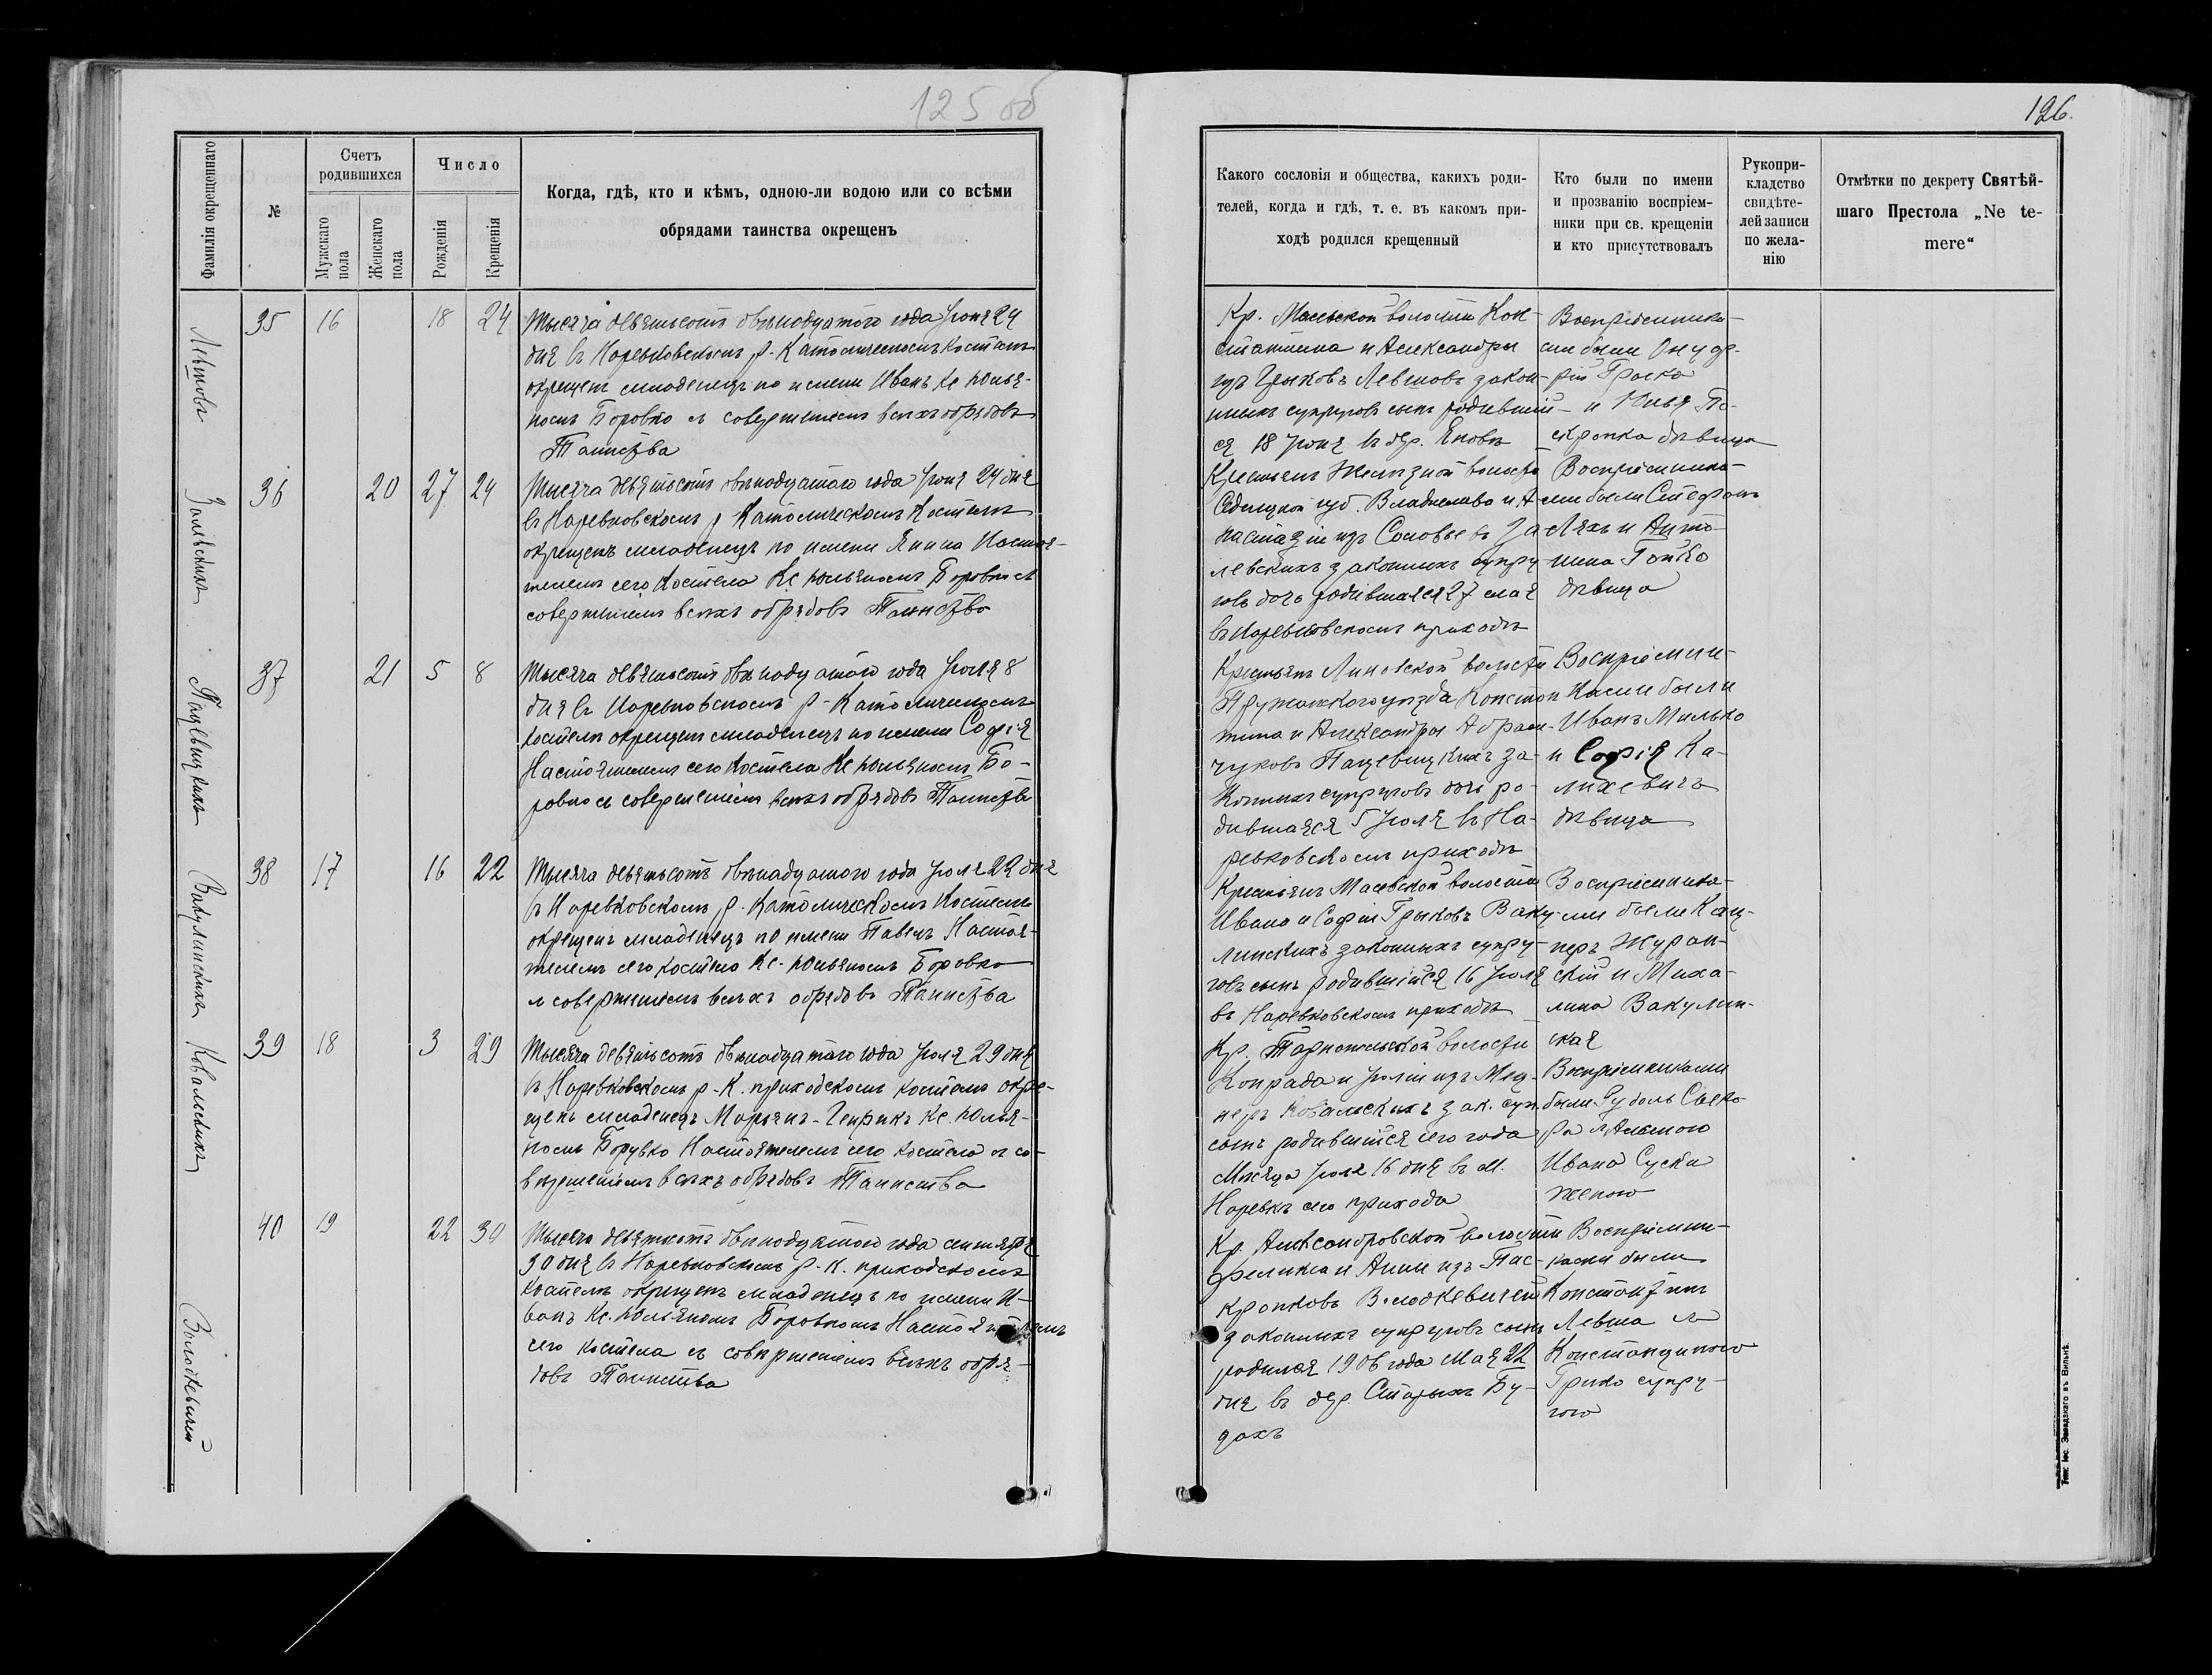 125 об
Фамилія новокрещеннаго
№
Счетъ родившихся
Мужскаго пола
Женскаго пола
Число
Рожденія
Крещенія
Когда, гдѣ, кто и кѣмъ, одною-ли водою или со всѣми
обрядами таинства окрещенъ
Левшовъ
35 16 18 24
Тысяча девятьсотъ двѣнадцатого года Іюня 24
дня въ Наревковскомъ р.-Католическомъ костелѣ
окрещенъ младенецъ по имени Иванъ Кс Юлья-
номъ Боровко съ совершеніемъ всѣхъ обрядовъ
Таинства
Залѣвскихъ
36 20 27 24
Тысяча девятьсотъ двѣнадцатаго года Іюня 24 дня
въ Наревковскомъ р Католическомъ Костелѣ
окрещенъ младенецъ по имени Янина Настоя-
телемъ сего Костела Кс Юльяномъ Боровко съ
совершеніемъ всѣхъ обрядовъ Таинства
Пацевицкихъ
37 21 5 8
Тысяча девятьсотъ двѣнадцатаго года Іюля 8
дня въ Наревковскомъ р-Католическомъ
костелѣ окрещенъ младенецъ по имени Софія
Настоятелемъ сего Костела Кс Юльяномъ Бо-
ровко съ совершеніемъ всѣхъ обрядовъ Таинства
Вакулинскихъ
38 17 16 22
Тысяча девятьсотъ двѣнадцатого года Іюля 22 дня
въ Наревковскомъ р. Католическомъ Костелѣ
окрещенъ младенецъ по имени Павелъ Настоя-
телемъ сего костела Кс. Юльяномъ Боровко
съ совершеніемъ всѣхъ обрядовъ Таинства
Ковальскихъ
39 18 3 29
Тысяча девятьсотъ двѣнадцатаго года Іюля 29 дня
въ Наревковскомъ р-К. приходскомъ костелѣ окре-
щенъ младенецъ Марьянъ-Генрикъ Кс. Юлья-
номъ Борувко Настоятелемъ сего костела съ со-
вершеніемъ всѣхъ обрядовъ Таинства
Володкевичей
40 19 22 30
Тысяча девятьсотъ двѣнадцатаго года сентября
30 дня въ Наревковскомъ р.-К. приходскомъ
костелѣ окрещенъ младенецъ по имени И-
ванъ Кс. Юльяномъ Боровкомъ Настоятелемъ
сего костела съ совершеніемъ всѣхъ обря-
довъ Таинства
126.
Какого сословія и общества, какихъ роди-
телей, когда и гдѣ, т. е. въ какомъ при-
ходѣ родился крещенный
Кто были по имени
и прозванію воспріем-
ники при св. крещеніи
и кто присутствовалъ
Рукопри-
кладство
свидѣте-
лей записи
по жела-
нію
Отмѣтки по декрету Святѣй-
шаго Престола „Ne te-
mere“
Кр. Масевской волости Кон-
стантина и Александры
изъ Грыковъ Левшовъ закон-
ныхъ супруговъ сынъ родившій-
ся 18 Іюня въ дер.
Воспріемника-
ми были Онуф-
рій
и Юлья Па-
скропка дѣвица
Крестьянъ волости
Сѣдлецкой губ. Владислава и А-
настазіи изъ Соловьевъ За-
левскихъ законныхъ супру-
говъ дочь родившаяся 27 мая
въ Наревковскомъ приходѣ
Воспріемника-
ми были Стефанъ
Ляхъ и Анто-
нина
дѣвица
Крестьянъ Линовской волости
Пружанскаго уѣзда Констан-
тина и Александры Абрам-
чуковъ Пацевицкихъ за-
конныхъ супруговъ дочь ро-
дившаяся 5 Іюля въ На-
ревковскомъ приходѣ
Воспріемни-
ками были
Иванъ Милько
и Софія Ка-
лихевичъ
дѣвица
Крестьянъ Масевской волости
Ивана и Софіи Грыковъ Ваку-
линскихъ законныхъ супру-
говъ сынъ родившійся 16 Іюля
въ Наревковскомъ приходѣ
Воспріемника-
ми были Кац-
перъ Журан-
скій и Миха-
лина Вакулин-
ская
Кр. волости
Конрада и Юліи изъ
Ковальскихъ зак. суп.
сынъ родившійся сего года
Мѣсяца Іюля 16 дня въ м.
Наревкѣ сего прихода
Воспріемниками
были
Ивана
женою
Кр. Александровской волости
Феликса и Анны изъ Пас-
кропковъ Володкевичей
законныхъ супруговъ сынъ
родился 1906 года Мая 22
дня въ дер. Старыхъ Бу-
дахъ
Воспріемни-
ками были
Константинъ
Левша съ
Констанціиною
Грико супру-
гою
Тип. Іос. Завадзкаго въ Вильнѣ.